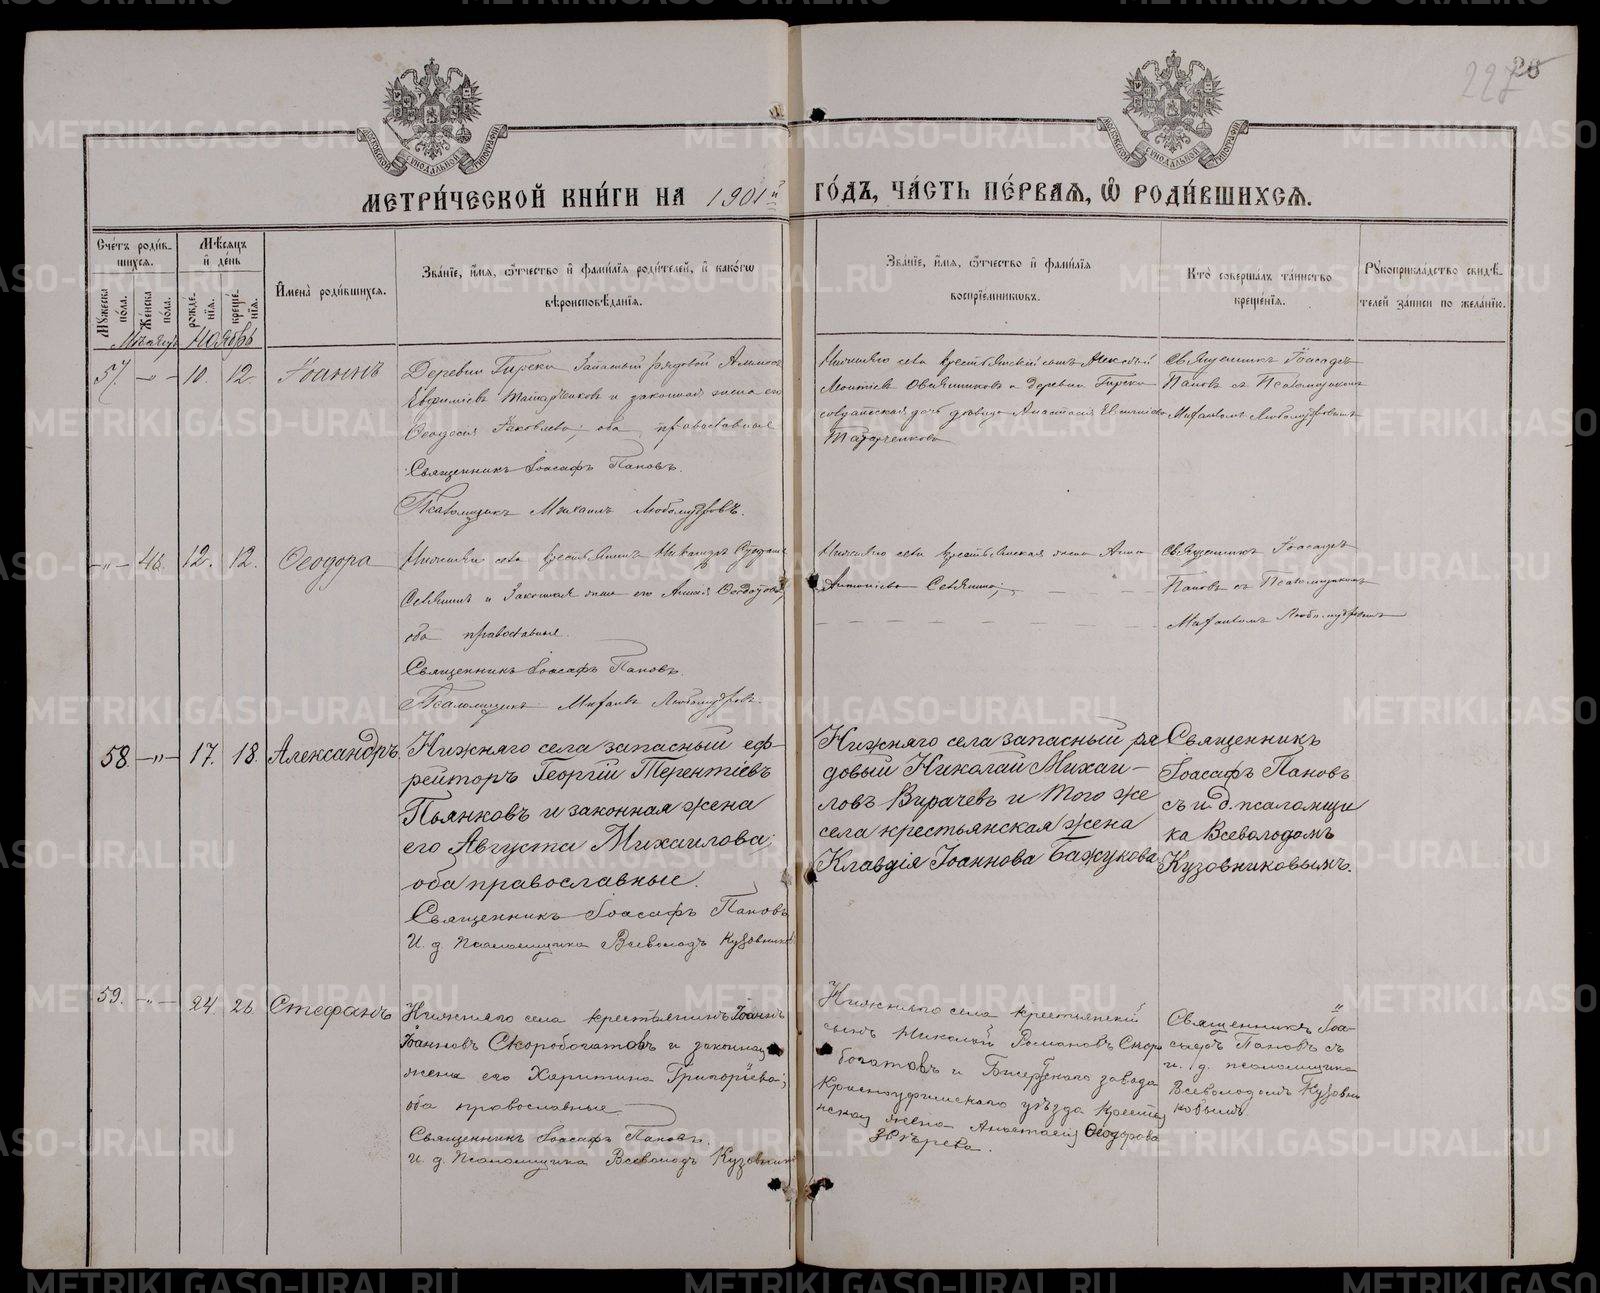 МЕТРИ́ЧЕСКОЙ КНИ́ГИ НА 1901й ГО́ДЪ, ЧА́СТЬ ПЕ́РВАЯ, Ѡ РОДИ́ВШИХСЯ.
227
26
Сче́тъ роди́в-
шихся.
Мѣ́сяцъ
и́ де́нь
Му́жеска по́ла.
Же́нска по́ла.
рожде́-нія.
креще́-нія.
И҆мена̀ роди́вшихся.
Зва́ніе, и҆́мя, ѻ҆́тчество и҆ фами́лія роди́телей, и҆ како́гѡ
вѣроисповѣ́данія.
Зва́ніе, и҆́мя, ѻ҆́тчество и҆ фами́лія
воспріе́мниковъ.
Кто̀ соверша́лъ та́инство
креще́нія.
Рꙋкоприкла́дство свидѣ́-
телей за́писи по жела́нію.
Мѣсяцъ Ноябрь
57. —„— 10. 12. Іоаннъ
Деревни Гирски запасный рядовой
Евфиміевъ и законная жена его
Ѳеодосія Іаковлева; оба православные
Священникъ Іоасафъ Пановъ.
Псаломщикъ Михаилъ Любомудровъ.
Нижняго села крестьянскій сынъ Алексѣй
Леонтіевъ Овсянниковъ и деревни Гирски
дочь дѣвица Анастасія
Священникъ Іоасафъ
Пановъ съ Псаломщикомъ
Михаиломъ Любомудровымъ
—„— 48. 12. 12. Ѳеодора
Нижняго села крестьянинъ
и законная жена его
оба православные.
Священникъ Іоасафъ Пановъ.
Псаломщикъ Михаилъ Любомудровъ.
Нижняго села крестьянская жена Анна
Антоніева Севянина;
Священникъ Іоасафъ
Пановъ съ Псаломщикомъ
Михаиломъ Любомудровымъ
58. —„— 17. 18. Александръ
Нижняго села запасный еф-
рейторъ Георгій Терентіевъ
Пьянковъ и законная жена
его Августа Михаилова;
оба православные.
Священникъ Іоасафъ Пановъ
И. д. Псаломщика Всеволодъ Кузовников
Нижняго села запасный ря
довый Николай Михаи-
ловъ Вирачевъ и того же
села крестьянская жена
Клавдія Іоаннова Бажукова
Священникъ
Іоасафъ Пановъ
съ и. д. псаломщи
ка Всеволодомъ
Кузовниковымъ.
59. —„— 24. 26. Стефанъ
Нижняго села крестьянинъ Іоаннъ
Іоанновъ Скоробогатовъ и законная
жена его Харитина Григоріева;
оба православные
Священникъ Іоасафъ Пановъ.
И. д. Псаломщика Всеволодъ Кузовник
Нижняго села крестьянскій
сынъ Николай Романовъ Скоро
богатовъ и Бисертскаго завода
Красноуфимскаго уѣзда крестья
нская жена Анастасія Ѳеодорова
Звѣрева.
Священникъ Іоа-
сафъ Пановъ съ
и. д. псаломщика
Всеволодомъ Кузовни
ковымъ